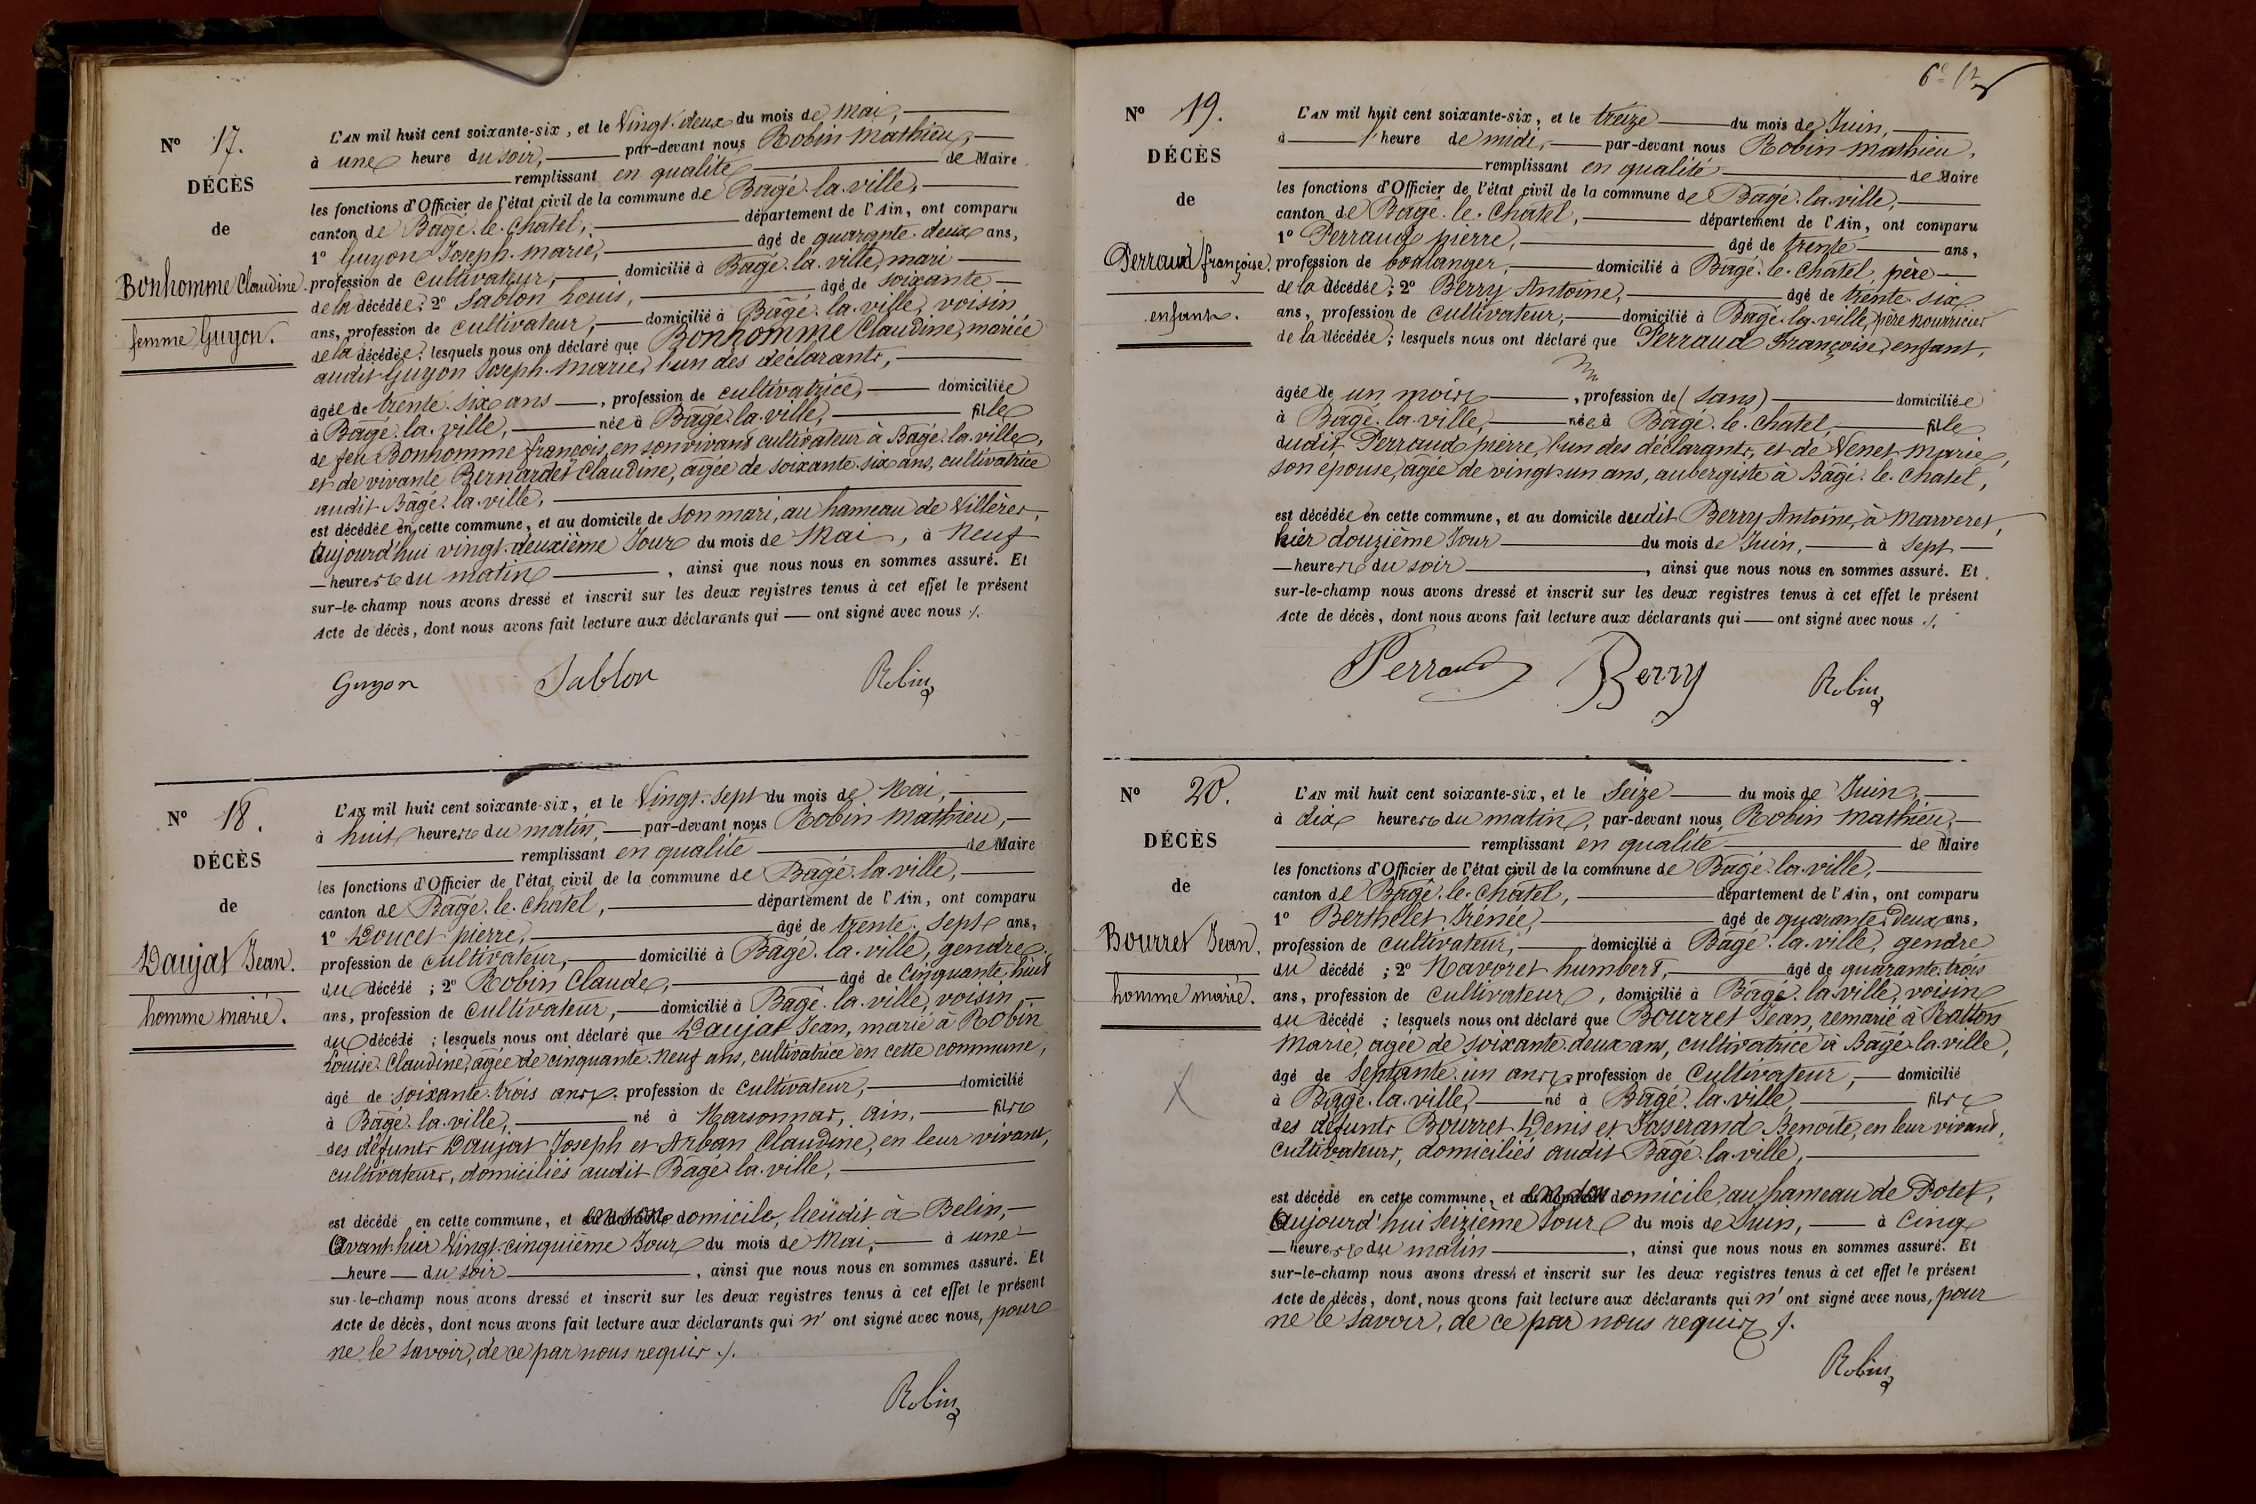 Nº 17.
DÉCÈS
de
Bonhomme Claudine.
femme Guyon.
L'AN mil huit cent soixante-six, et le Vingt-deux du mois de Mai,
à une heure du soir, par-devant nous Robin Mathieu,
remplissant en qualité de Maire
les fonctions d'Officier de l'état civil de la commune de Bâgé-la-ville,
canton de Bâgé-le-Chatel, département de l'Ain, ont comparu
1º Guyon Joseph-Marie, âgé de quarante-deux ans,
profession de cultivateur, domicilié à Bâgé-la-ville, mari
de la décédée; 2º Sablon Louis, âgé de soixante
ans, profession de cultivateur, domicilié à Bâgé-la-ville, voisin
de la décédée; lesquels nous ont déclaré que Bonhomme Claudine, mariée
audit Guyon Joseph-Marie, l'un des déclarants,
âgée de trente-six ans, profession de cultivatrice, domiciliée
à Bâgé-la-ville, née à Bâgé-la-ville, fille
de feu Bonhomme françois, en son vivant cultivateur à Bâgé-la-ville,
et de vivante Bernardet Claudine, âgée de soixante-six ans, cultivatrice
audit Bâgé-la-ville,
est décédée en cette commune, et au domicile de son mari, au hameau de Villères,
Aujourd'hui vingt-deuxième Jour du mois de Mai, à Neuf
heures du matin, ainsi que nous nous en sommes assuré. Et
sur-le-champ nous avons dressé et inscrit sur les deux registres tenus à cet effet le présent
Acte de décès, dont nous avons fait lecture aux déclarants qui ont signé avec nous ./.
Guyon Sablon Robin
Nº 18.
DÉCÈS
de
Daujat Jean.
homme marié.
L'AN mil huit cent soixante-six, et le Vingt-Sept du mois de Mai,
à huit heures du matin, par-devant nous Robin Mathieu,
remplissant en qualité de Maire
les fonctions d'Officier de l'état civil de la commune de Bâgé-la-ville,
canton de Bâgé-le-Châtel, département de l'Ain, ont comparu
1º Doucet pierre, âgé de trente-sept ans,
profession de cultivateur, domicilié à Bâgé-la-ville, gendre
du décédé; 2º Robin Claude, âgé de Cinquante-huit
ans, profession de cultivateur, domicilié à Bâgé-la-ville, voisin
du décédé; lesquels nous ont déclaré que Daujat Jean, marié à Robin
Louise-Claudine, âgée de cinquante-neuf ans, cultivatrice en cette commune,
âgé de soixante-trois ans, profession de cultivateur, domicilié
à Bâgé-la-ville, né à Marsonnas, Ain, fils
des défunts Daujat Joseph et Arban Claudine, en leur vivant,
cultivateurs, domiciliés audit Bâgé-la-ville,
est décédé en cette commune, et en son domicile, lieudit à Belin,
Avant-hier Vingt-cinquième Jour du mois de Mai, à une
heure du soir, ainsi que nous nous en sommes assuré. Et
sur-le-champ nous avons dressé et inscrit sur les deux registres tenus à cet effet le présent
Acte de décès, dont nous avons fait lecture aux déclarants qui n'ont signé avec nous, pour
ne le savoir, de ce par nous requis ./.
Robin
Nº 19.
DÉCÈS
de
Perraud françoise.
enfant.
L'AN mil huit cent soixante-six, et le treize du mois de Juin,
à l'heure de midi, par-devant nous Robin Mathieu,
remplissant en qualité de Maire
les fonctions d'Officier de l'état civil de la commune de Bâgé-la-ville,
canton de Bâgé-le-Chatel, département de l'Ain, ont comparu
1º Perraud pierre, âgé de trente ans,
profession de boulanger, domicilié à Bâgé-le-Chatel, père
de la décédée; 2º Berry Antoine, âgé de trente-six
ans, profession de cultivateur, domicilié à Bâgé-la-ville, père nourricier
de la décédée; lesquels nous ont déclaré que Perraud Françoise, enfant,
âgée de un mois, profession de (sans) domiciliée
à Bâgé-la-ville, née à Bâgé-le-Chatel, fille
dudit Perraud pierre, l'un des déclarants, et de Venet Marie,
son épouse, âgée de vingt-un ans, aubergiste à Bâgé-le-Chatel,
est décédée en cette commune, et au domicile dudit Berry Antoine, à Marveret,
hier douzième Jour du mois de Juin, à Sept
heures du soir, ainsi que nous nous en sommes assuré. Et
sur-le-champ nous avons dressé et inscrit sur les deux registres tenus à cet effet le présent
Acte de décès, dont nous avons fait lecture aux déclarants qui ont signé avec nous ./.
Perraud Berry Robin
Nº 20.
DÉCÈS
de
Bourret Jean.
homme marié.
L'AN mil huit cent soixante-six, et le Seize du mois de Juin,
à dix heures du matin, par-devant nous Robin Mathieu,
remplissant en qualité de Maire
les fonctions d'Officier de l'état civil de la commune de Bâgé-la-ville,
canton de Bâgé-le-Châtel, département de l'Ain, ont comparu
1º Berthelet Irénée, âgé de quarante-deux ans,
profession de cultivateur, domicilié à Bâgé-la-ville, gendre
du décédé; 2º Navoret humbert, âgé de quarante-trois
ans, profession de cultivateur, domicilié à Bâgé-la-ville, voisin
du décédé; lesquels nous ont déclaré que Bourret Jean, remarié à Ratton
Marie, agée de soixante-deux ans, cultivatrice à Bâgé-la-ville,
âgé de Septante-un ans, profession de Cultivateur, domicilié
à Bâgé-la-ville, né à Bâgé-la-ville, fils
des défunts Bourret Denis et Josserand Benoite, en leur vivant,
cultivateurs, domiciliés audit Bâgé-la-ville,
est décédé en cette commune, et en son domicile, au hameau de Potet,
Aujourd'hui Seizième Jour du mois de Juin, à Cinq
heures du matin, ainsi que nous nous en sommes assuré. Et
sur-le-champ nous avons dressé et inscrit sur les deux registres tenus à cet effet le présent
Acte de décès, dont nous avons fait lecture aux déclarants qui n'ont signé avec nous, pour
ne le savoir, de ce par nous requis ./.
Robin